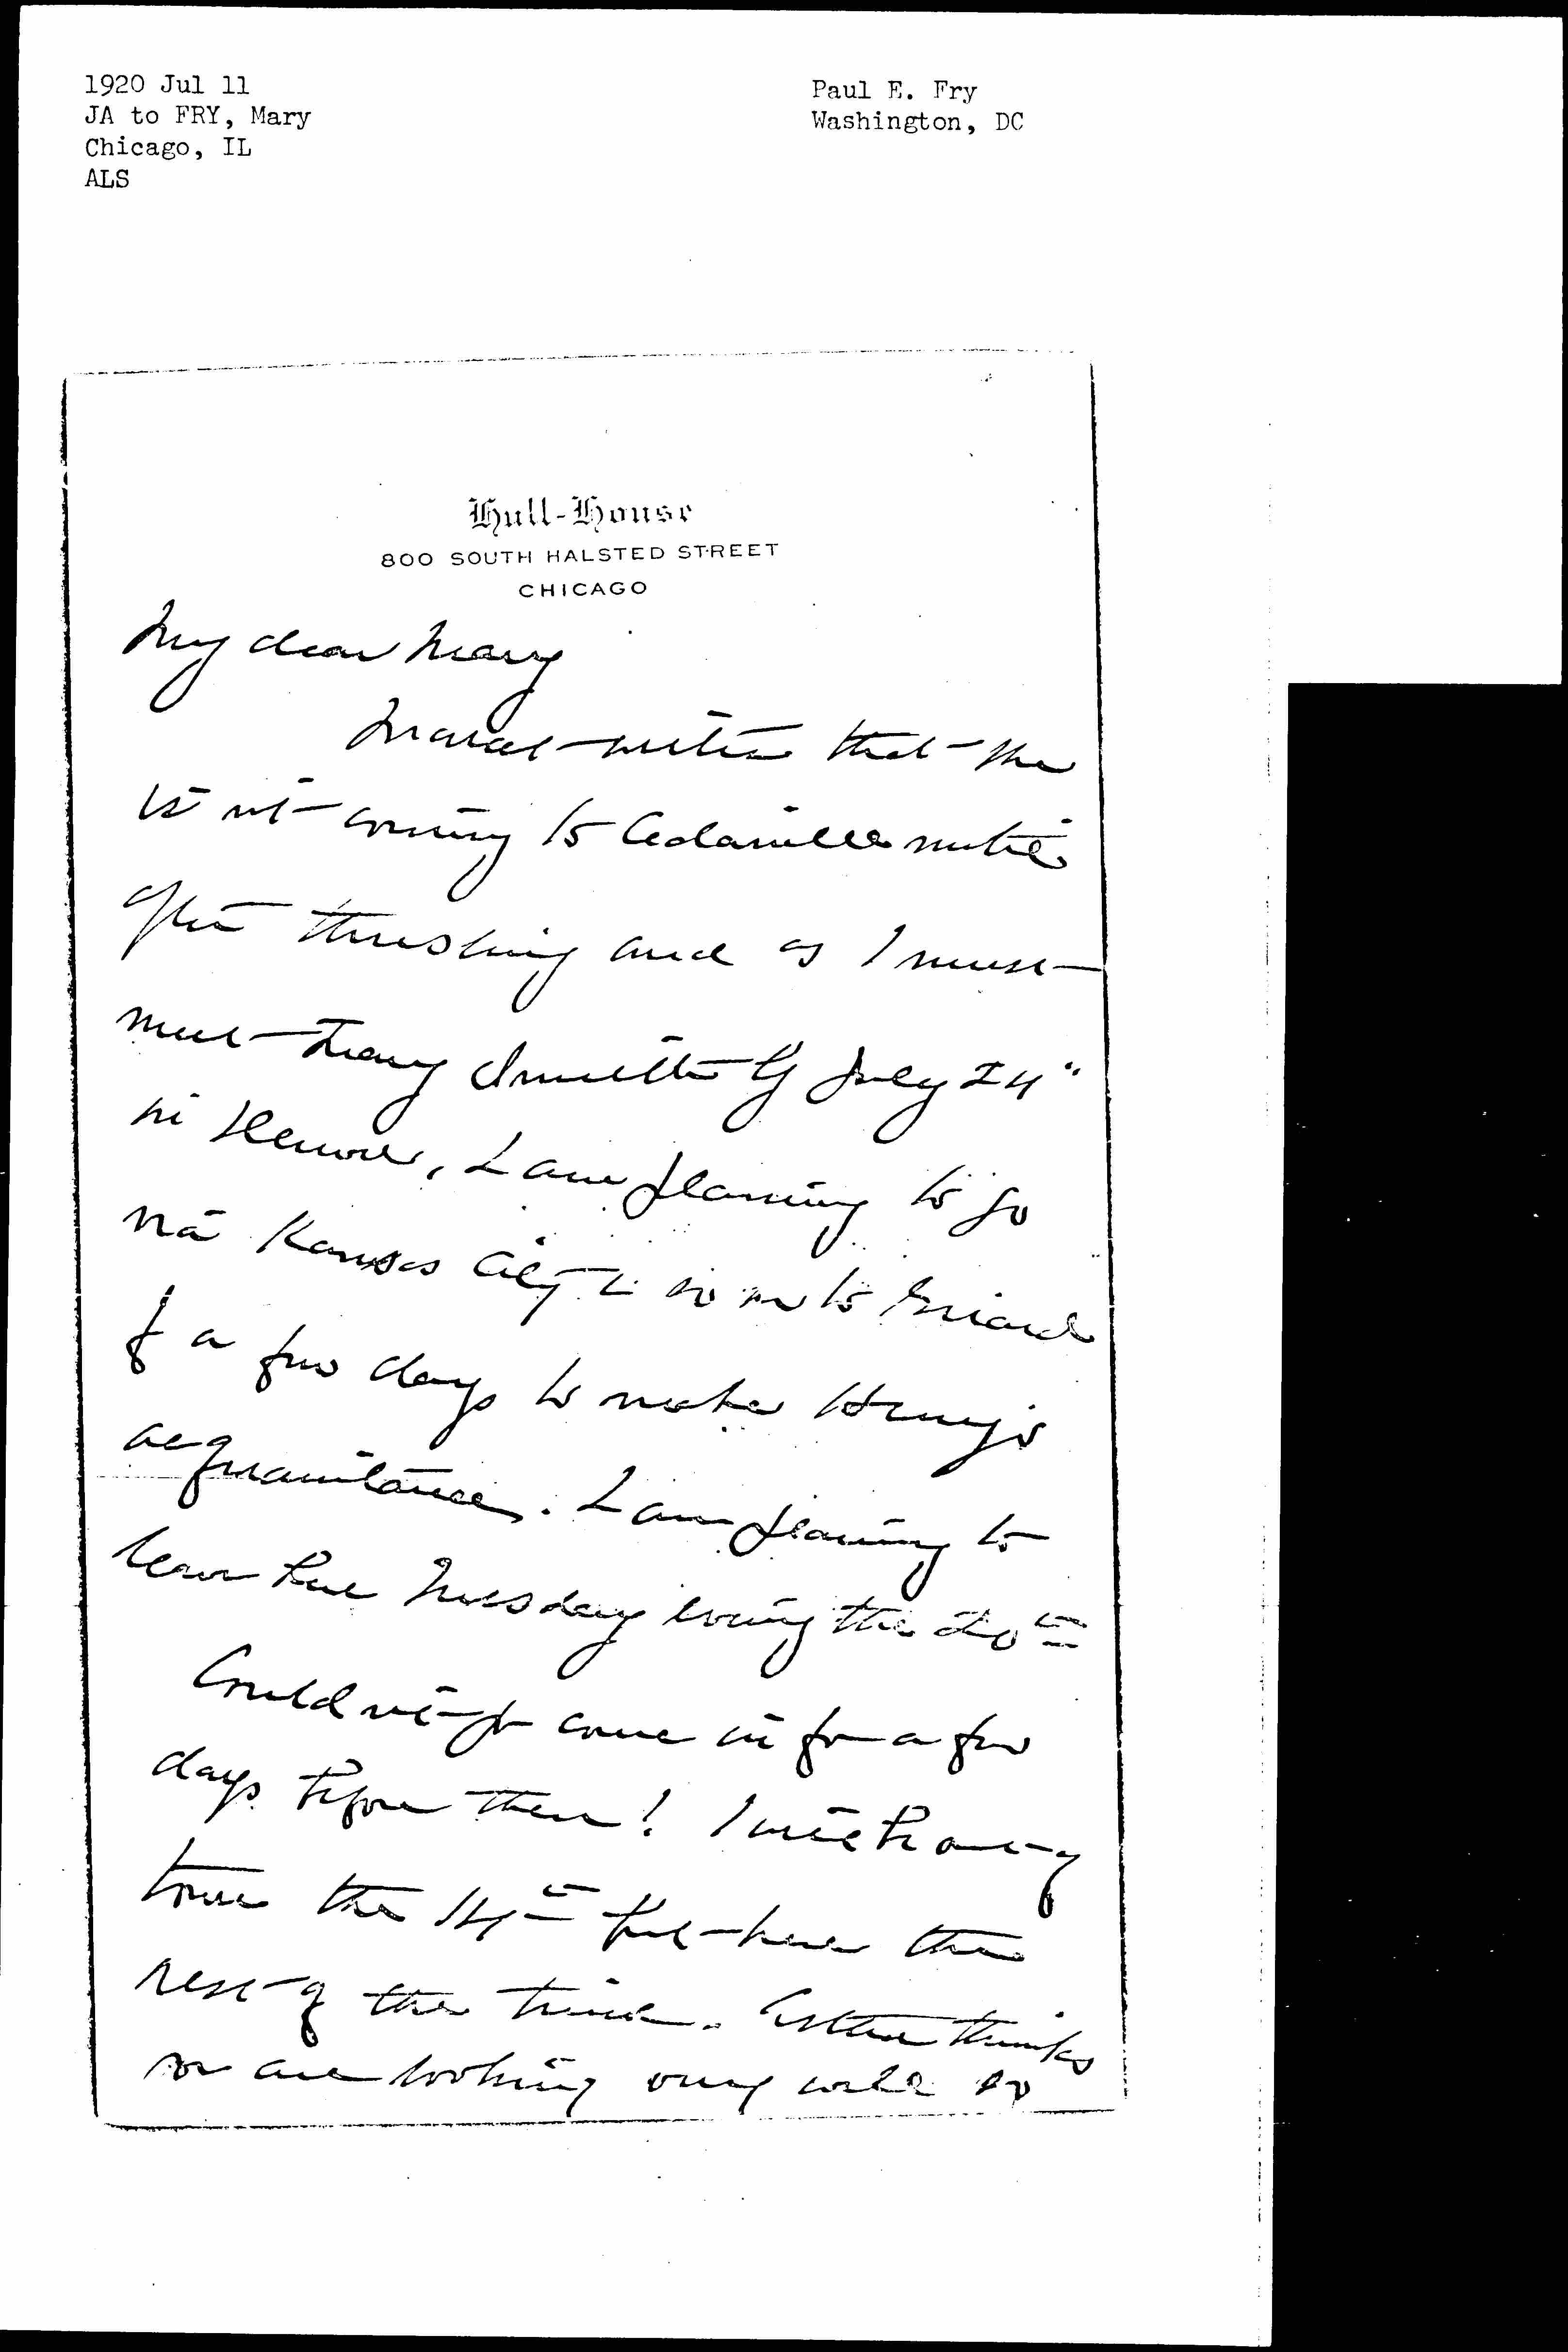 1920 Jul 11
JA to FRY, Mary
Chicago, IL
ALS
Paul E. Fry
Washington, DC
Hull-House
800 SOUTH HALSTED STREET
CHICAGO
My dear Mary
Marcet writes that she
is not coming to Cedarville until
after threshing and as I must
meet Mary Smith July 24"
in Denver, I am planning to go
via Kansas City & so on to Girard
for a few days to make Henry's
acquaintance. I am planning to
leave here Tuesday evening the 20th
Could not you come in for a few
days before then! I will be out of
town the 14th but here the
rest of the time. Esther thinks
you are looking very well so